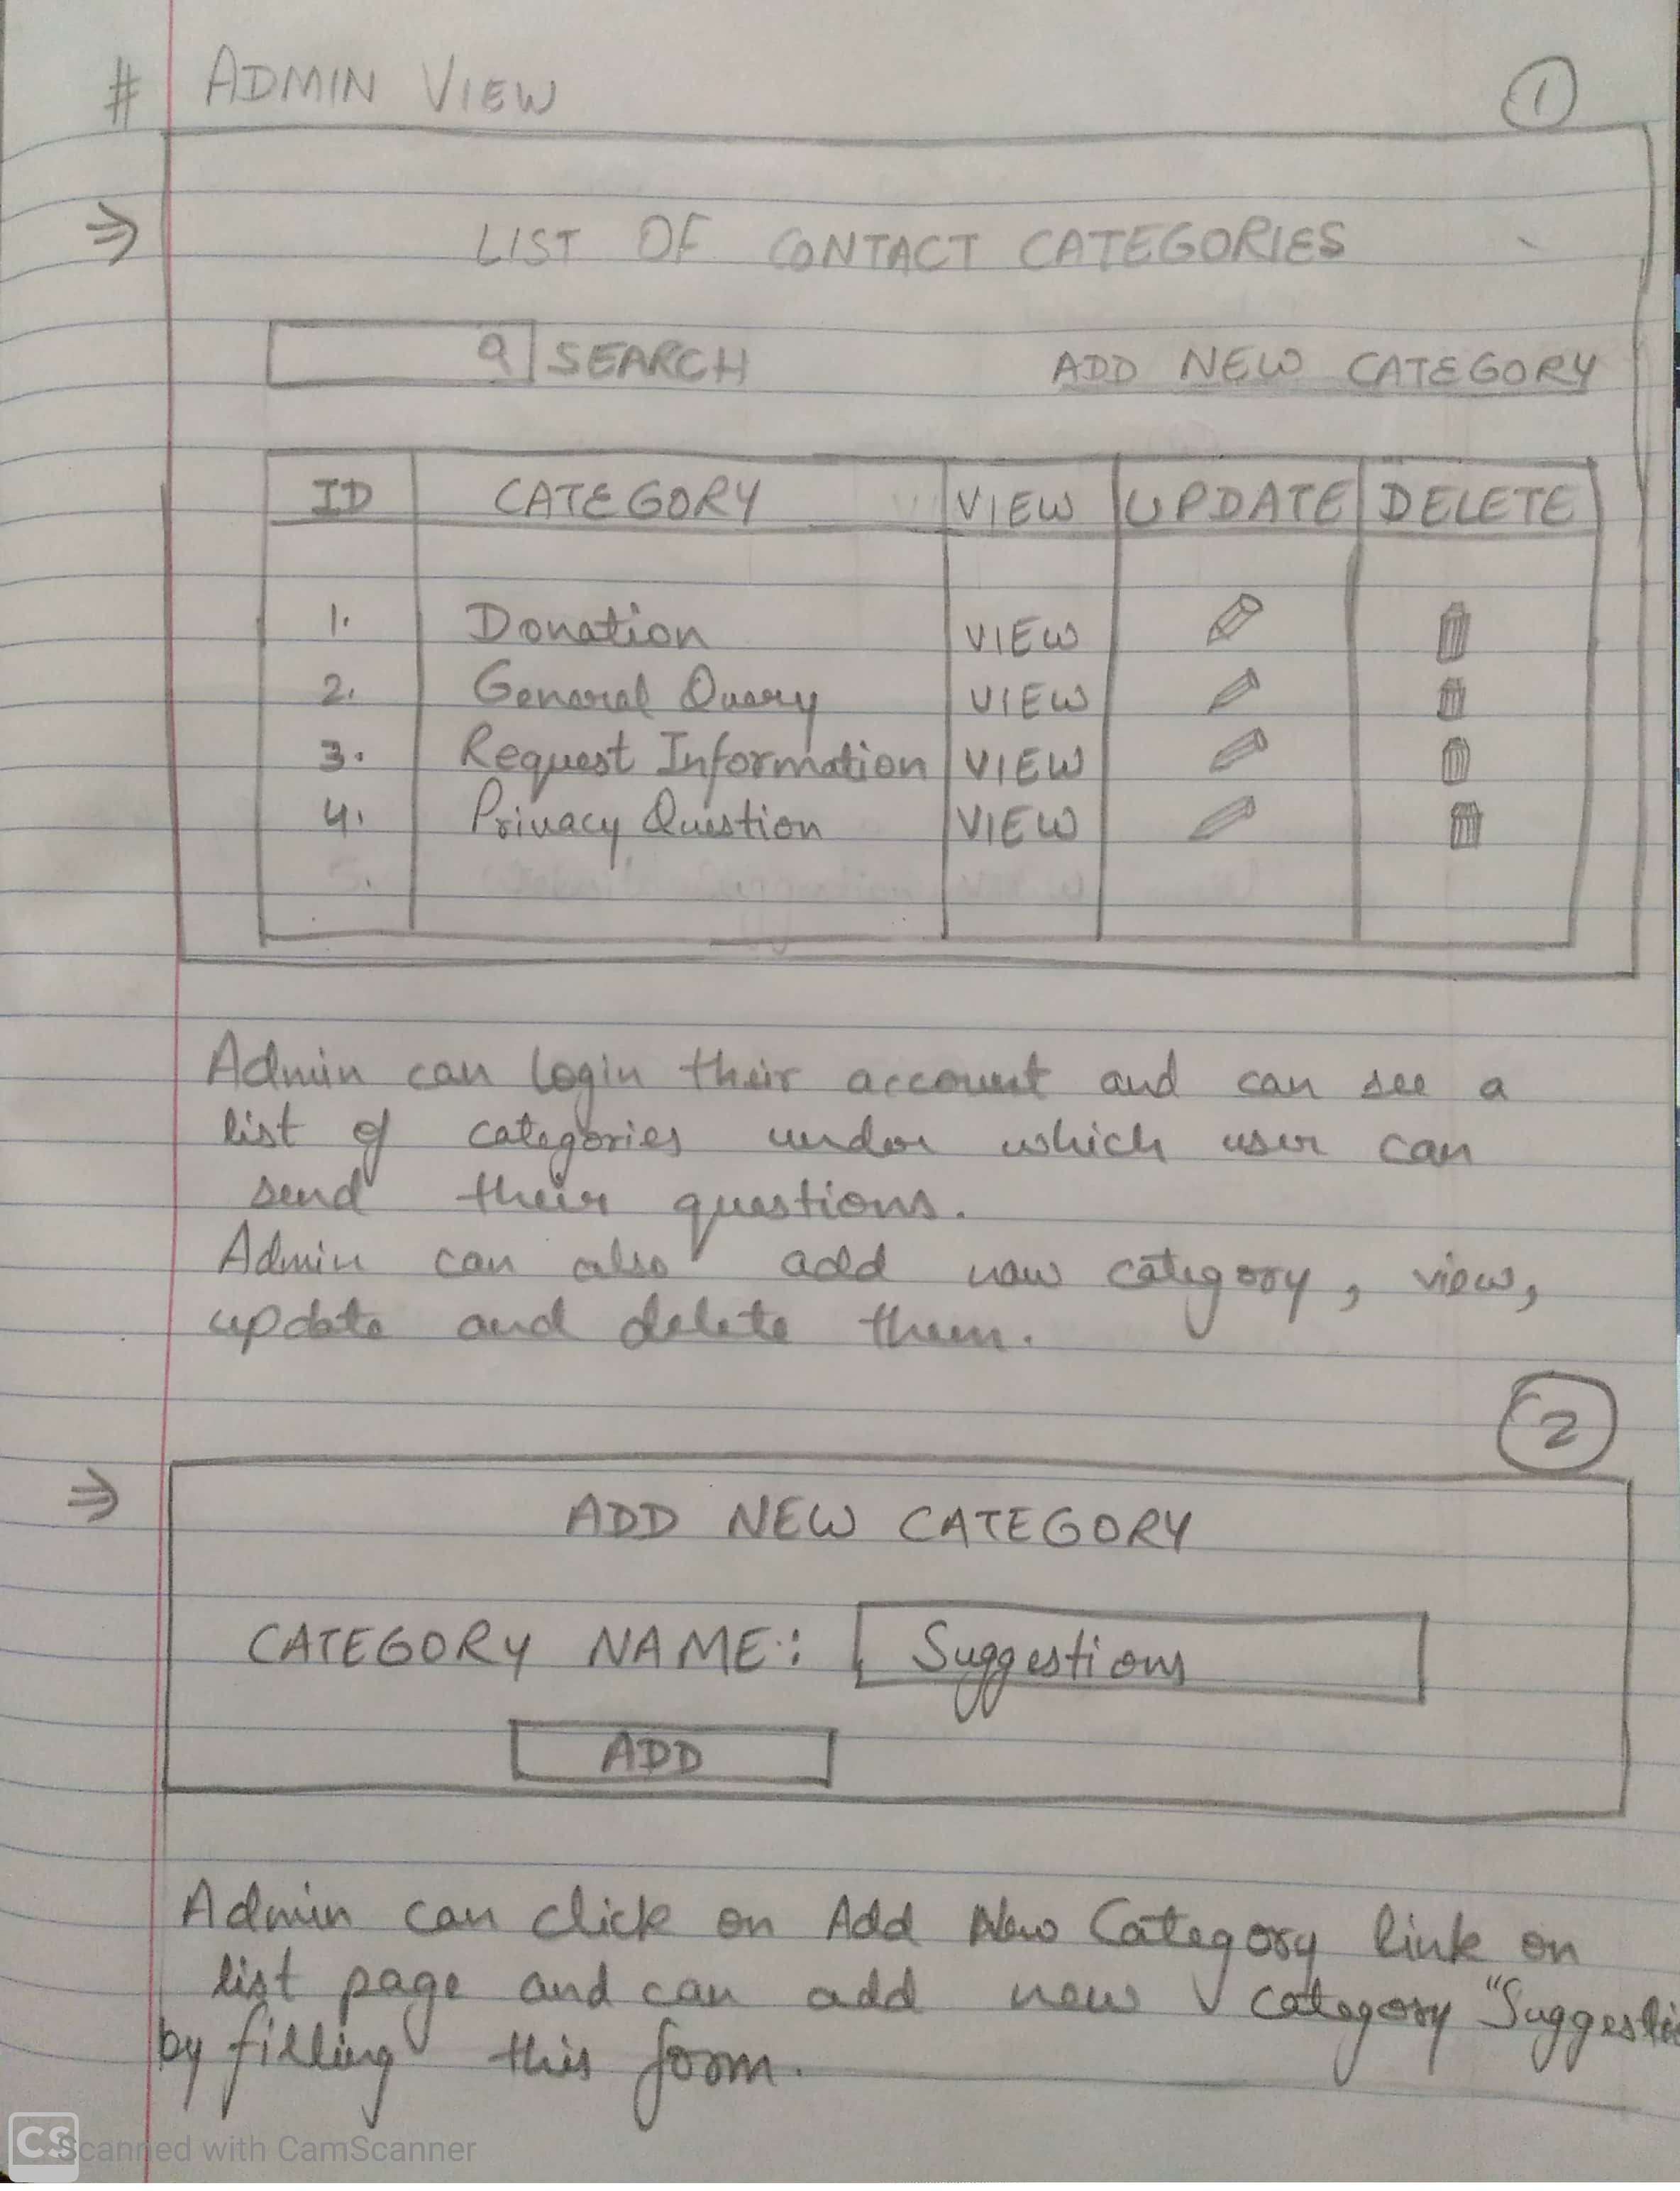 # ADMIN VIEW
1
LIST OF CONTACT CATEGORIES
SEARCH ADD NEW CATEGORY
ID CATEGORY VIEW UPDATE DELETE
1. Donation VIEW
2. General Query VIEW
3. Request Information VIEW
4. Privacy Question VIEW
Admin can login their account and can see a
list of categories under which user can
send their questions.
Admin can also add new category, view,
update and delete them.
2
ADD NEW CATEGORY
CATEGORY NAME: Suggestions
ADD
Admin can click on Add New Category link on
list page and can add new category "Suggestio
by filling this form.
CS Scanned with CamScanner